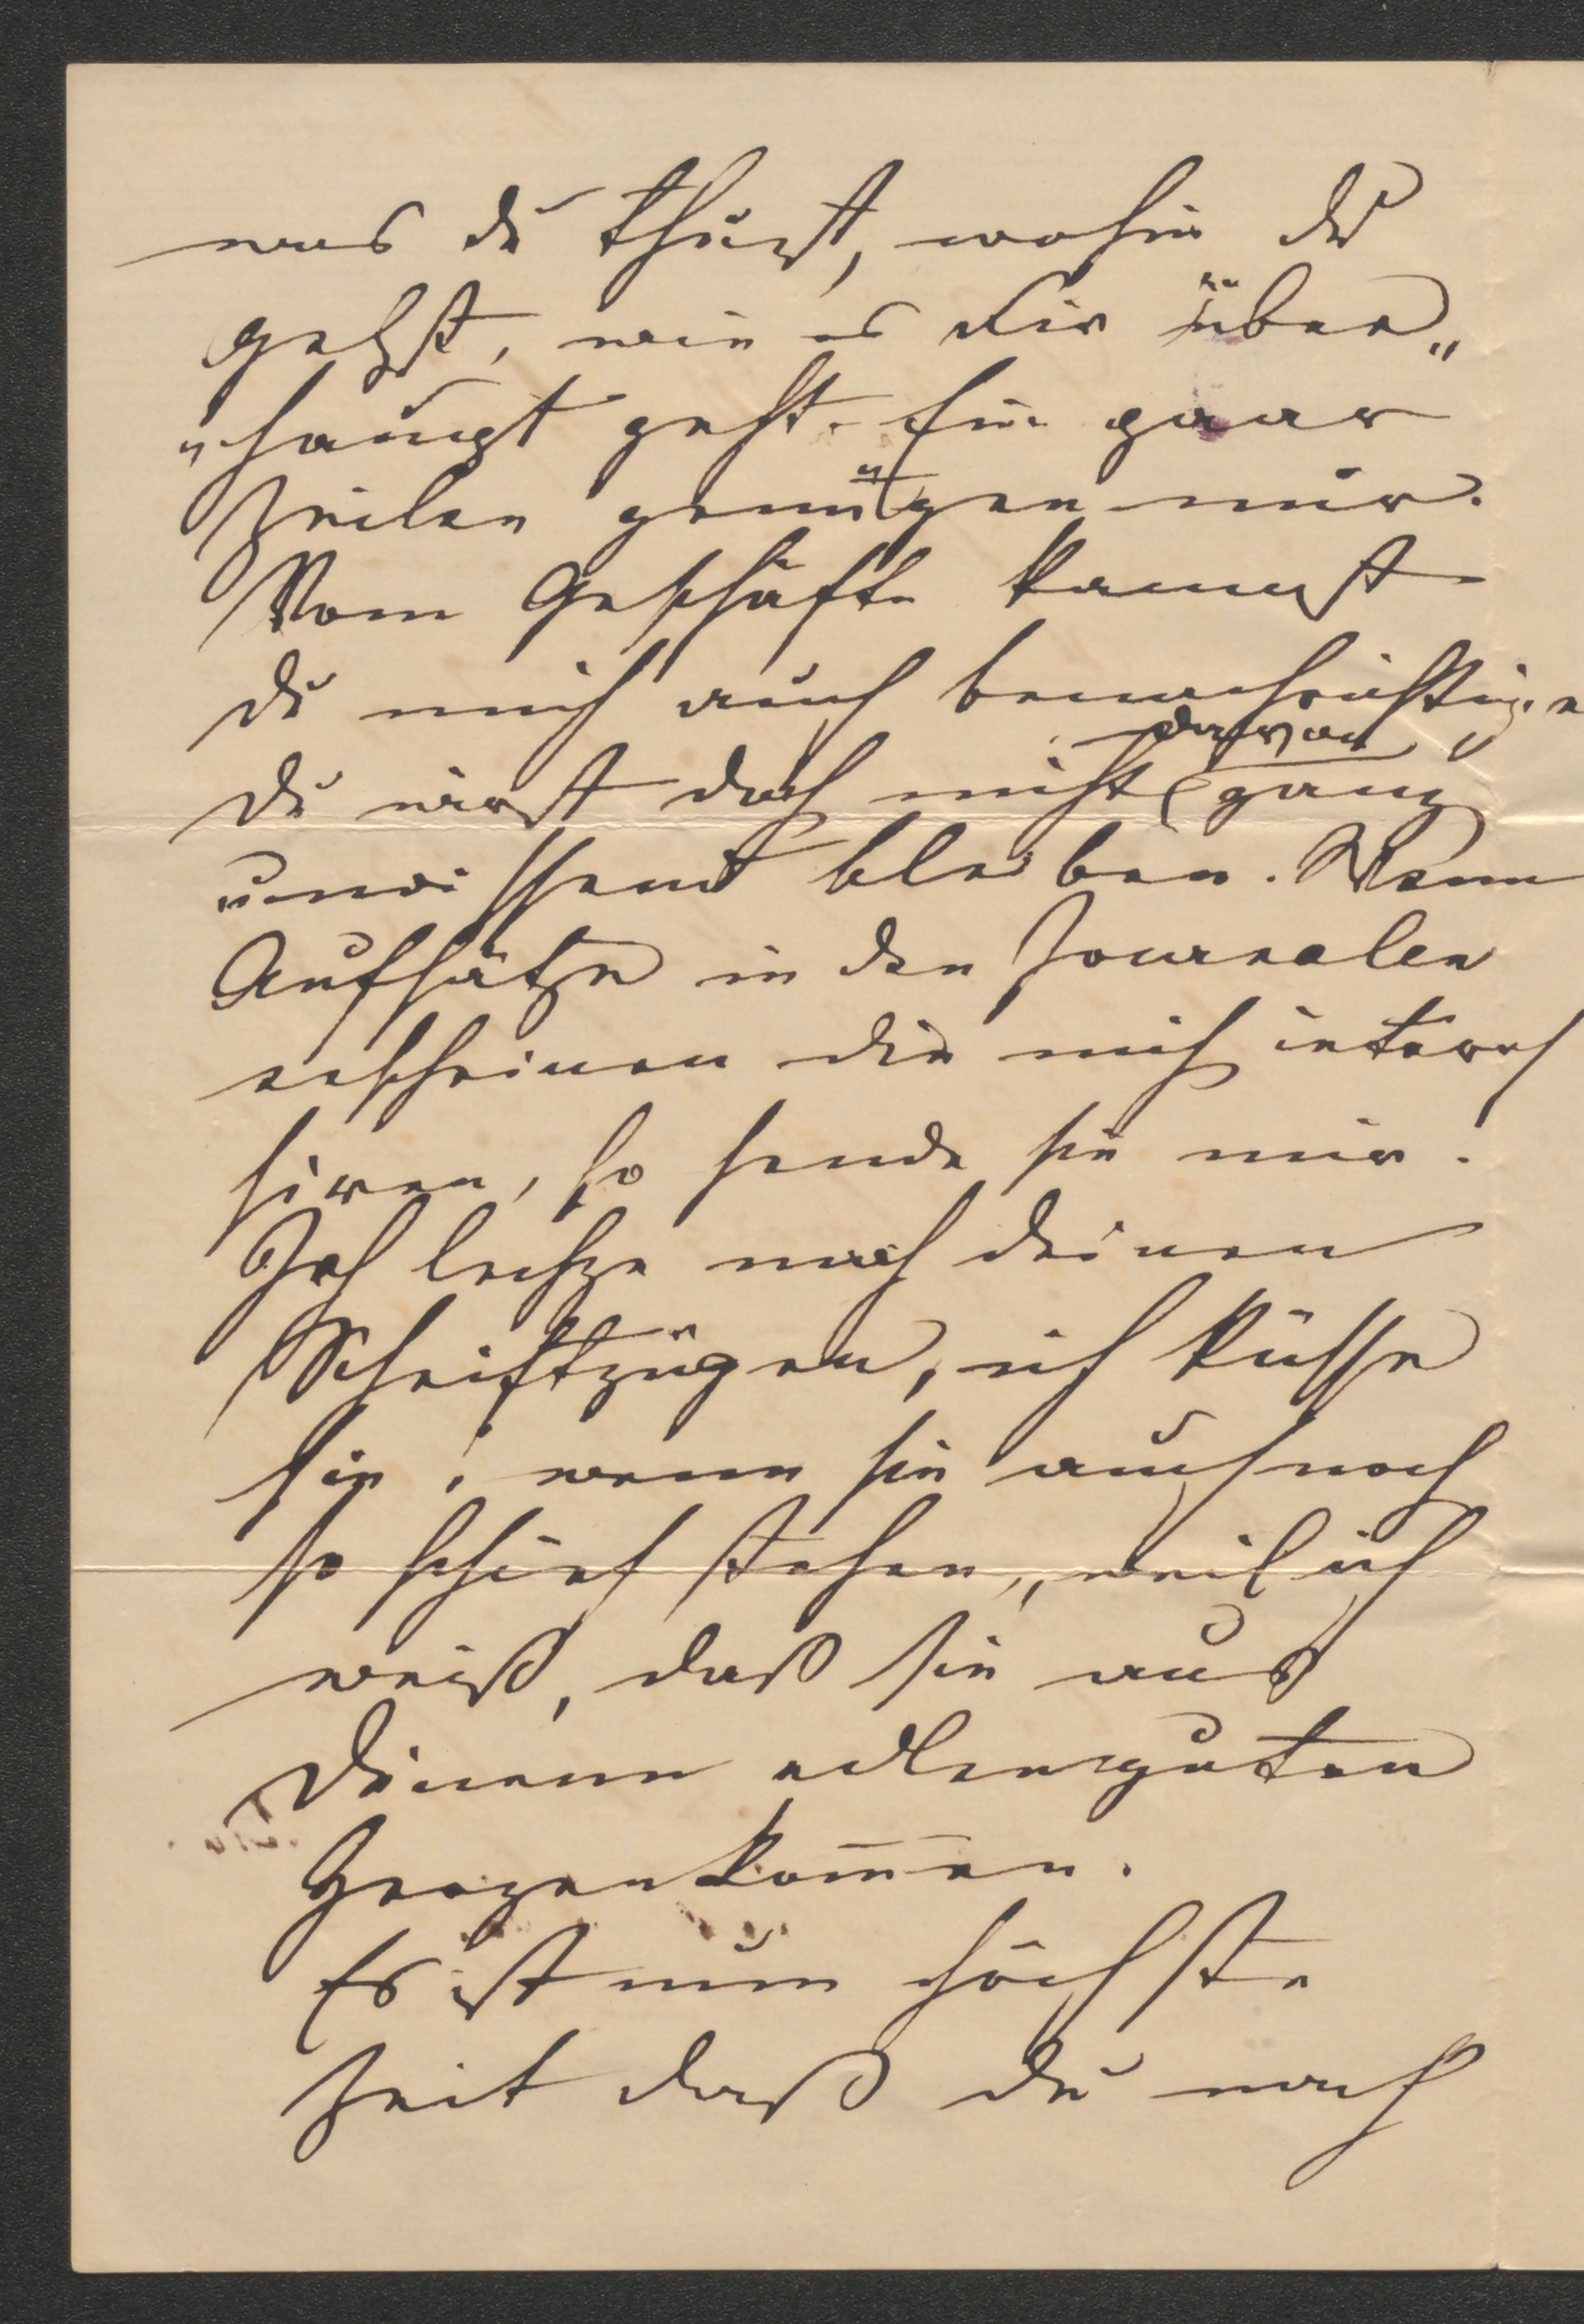 was du thust, wohin du
gehst, wie es dir über„
„haupt geht. Ein paar
Zeilen genügen mir.
Vom Geschäfte kannst
du mich auch benachrichtigen
du wirst doch nicht davon ganz
unwissend bleiben. Wenn
Aufsätze in den Journalen
erscheinen die mich interes
siren, so sende sie mir.
Ich lechze nach deinen
Schriftzügen, ich küsse
sie, wenn sie auch noch
so schief stehen, weil ich
weiß, daß sie aus
deinem edlen guten
Herzen kom̄en.
Es ist nun höchste
Zeit daß du nach